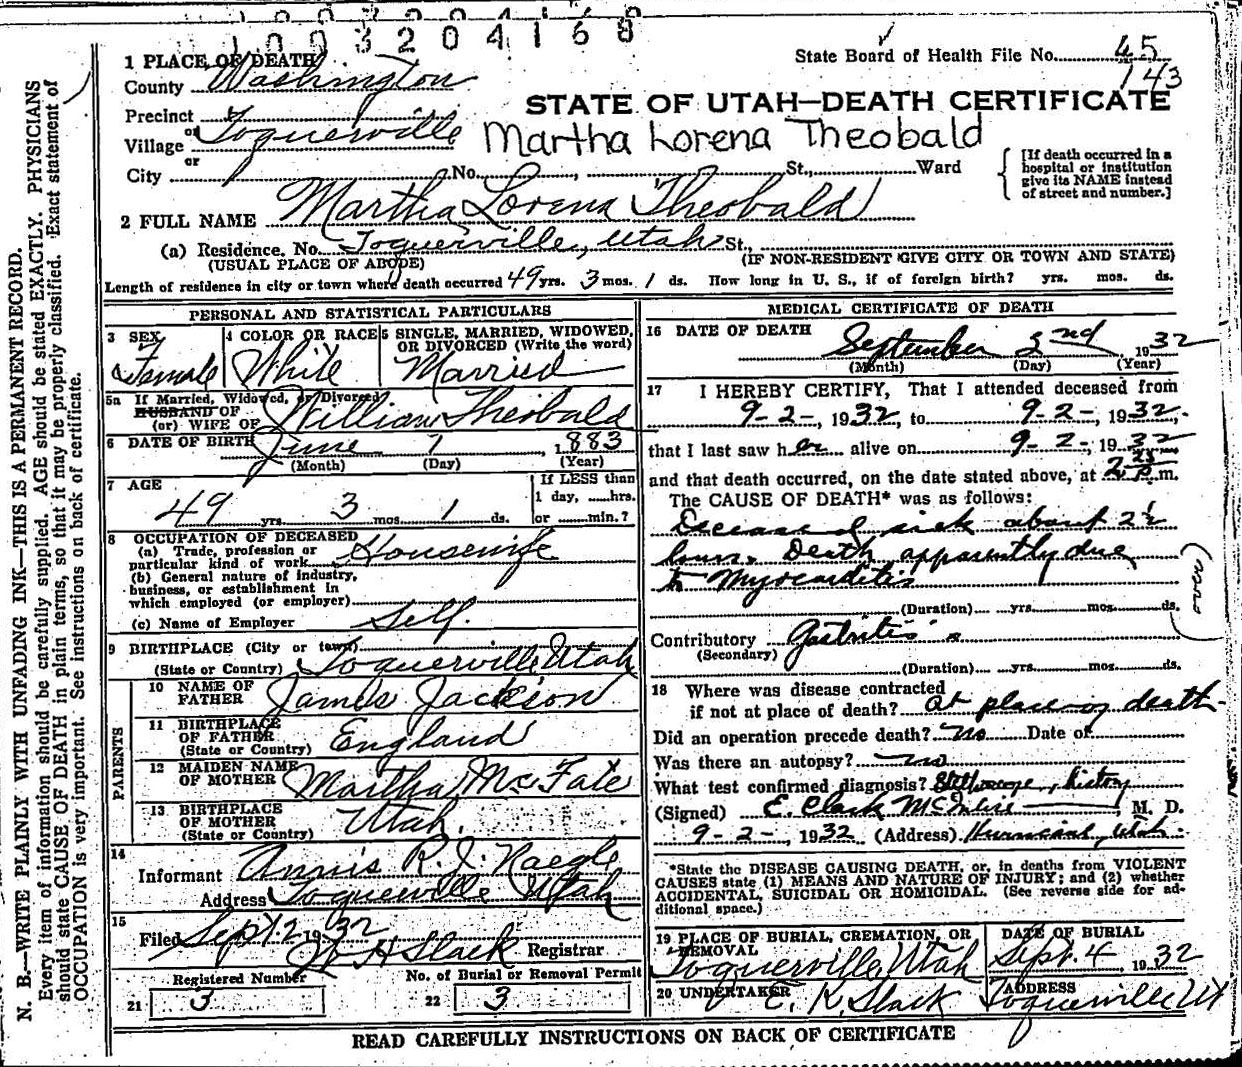 1 0 0 3 2 0 4 1 6 8
State Board of Health File No. 45
143
1 PLACE OF DEATH
County Washington
STATE OF UTAH—DEATH CERTIFICATE
Precinct
or
Village Toquerville
Martha Lorena Theobald
or
City No. , St., Ward
[If death occurred in a hospital or institution give its NAME instead of street and number.]
2 FULL NAME Martha Lorena Theobald
(a) Residence. No. Toquerville, Utah St.,
(USUAL PLACE OF ABODE) (IF NON-RESIDENT GIVE CITY OR TOWN AND STATE)
Length of residence in city or town where death occurred 49 yrs. 3 mos. 1 ds. How long in U. S., if of foreign birth? yrs. mos. ds.
PERSONAL AND STATISTICAL PARTICULARS
3 SEX Female
4 COLOR OR RACE White
5 SINGLE, MARRIED, WIDOWED, OR DIVORCED (Write the word) Married
5a If Married, Widowed, or Divorced
HUSBAND OF
(or) WIFE OF William Theobald
6 DATE OF BIRTH June 1, 1883
(Month) (Day) (Year)
7 AGE
49 yrs. 3 mos. 1 ds.
If LESS than
1 day, hrs.
or min.?
8 OCCUPATION OF DECEASED
(a) Trade, profession or
particular kind of work Housewife
(b) General nature of industry,
business, or establishment in
which employed (or employer)
(c) Name of Employer Self.
9 BIRTHPLACE (City or town)
(State or Country) Toquerville, Utah
PARENTS
10 NAME OF FATHER James Jackson
11 BIRTHPLACE OF FATHER (State or Country) England
12 MAIDEN NAME OF MOTHER Martha McFate
13 BIRTHPLACE OF MOTHER (State or Country) Utah.
14
Informant Annis R. J. Naegle
Address Toquerville Utah
15
Filed Sept 2 1932 W H Slack Registrar
Registered Number
21 3
No. of Burial or Removal Permit
22 3
MEDICAL CERTIFICATE OF DEATH
16 DATE OF DEATH
September 2nd 1932
(Month) (Day) (Year)
17 I HEREBY CERTIFY, That I attended deceased from
9-2-, 1932, to 9-2-, 1932,
that I last saw her alive on 9-2-, 1932
and that death occurred, on the date stated above, at 2 p.m.
The CAUSE OF DEATH* was as follows:
Deceased sick about 2½
hours. Death apparently due
to Myocarditis
(over)
(Duration) yrs. mos. ds.
Contributory Gastritis
(Secondary)
(Duration) yrs. mos. ds.
18 Where was disease contracted
if not at place of death? At place of death
Did an operation precede death? no Date of
Was there an autopsy? no
What test confirmed diagnosis? Stethoscope, history
(Signed) E. Clark McIntire, M. D.
9-2-, 1932 (Address) Hurricane, Utah.
*State the DISEASE CAUSING DEATH, or, in deaths from VIOLENT
CAUSES state (1) MEANS AND NATURE OF INJURY; and (2) whether
ACCIDENTAL, SUICIDAL OR HOMICIDAL. (See reverse side for ad-
ditional space.)
19 PLACE OF BURIAL, CREMATION, OR REMOVAL
Toquerville, Utah
DATE OF BURIAL
Sept. 4, 1932
20 UNDERTAKER E. K. Slack
ADDRESS
Toquerville Ut
READ CAREFULLY INSTRUCTIONS ON BACK OF CERTIFICATE
N. B.—WRITE PLAINLY WITH UNFADING INK—THIS IS A PERMANENT RECORD.
Every item of information should be carefully supplied. AGE should be stated EXACTLY. PHYSICIANS
should state CAUSE OF DEATH in plain terms, so that it may be properly classified. Exact statement of
OCCUPATION is very important. See instructions on back of certificate.